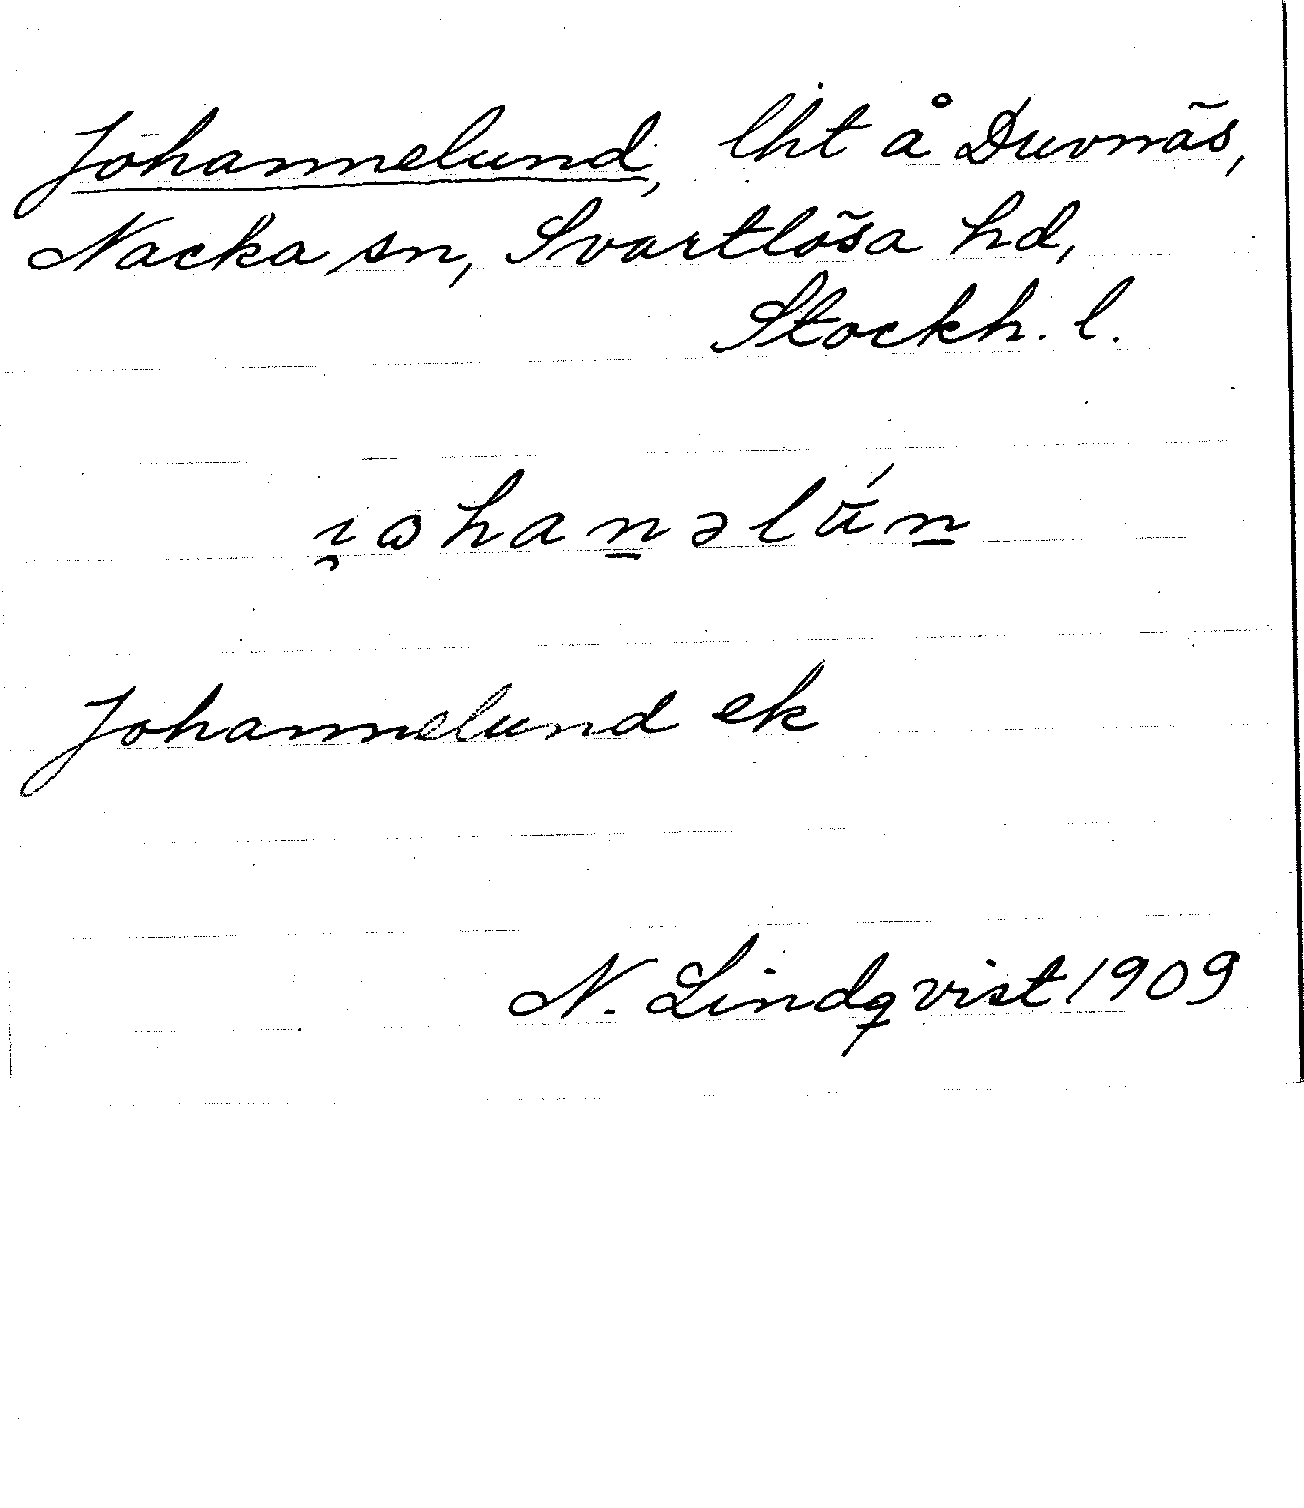 Johannelund, lht å Duvnäs,
Nacka sn, Svartlösa hd,
Stockh. l.
ı̯ɷhan̲əlǘn̲
Johannelund ek
N. Lindqvist 1909